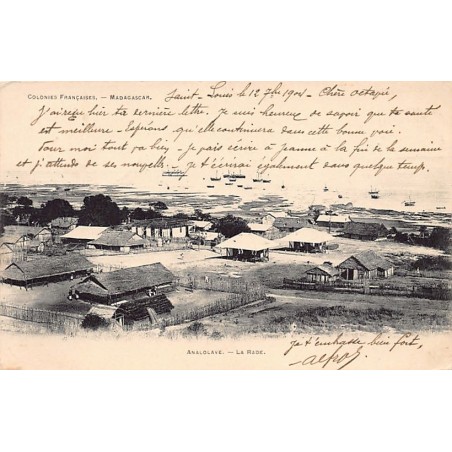 COLONIES FRANÇAISES. — MADAGASCAR. Saint-Louis le 12 7bre 1904 - Chère Octavie,
J'ai reçu hier ta dernière lettre. Je suis heureux de savoir que ta santé
est meilleure - Espérons qu'elle continuera dans cette bonne voie.
Pour moi tout va bien - je vais écrire à Jeanne à la fin de la semaine
et j'attends de ses nouvelles - je t'écrirai également dans quelque temps.
Je t'embrasse bien fort,
ANALOLAVE. — LA RADE.